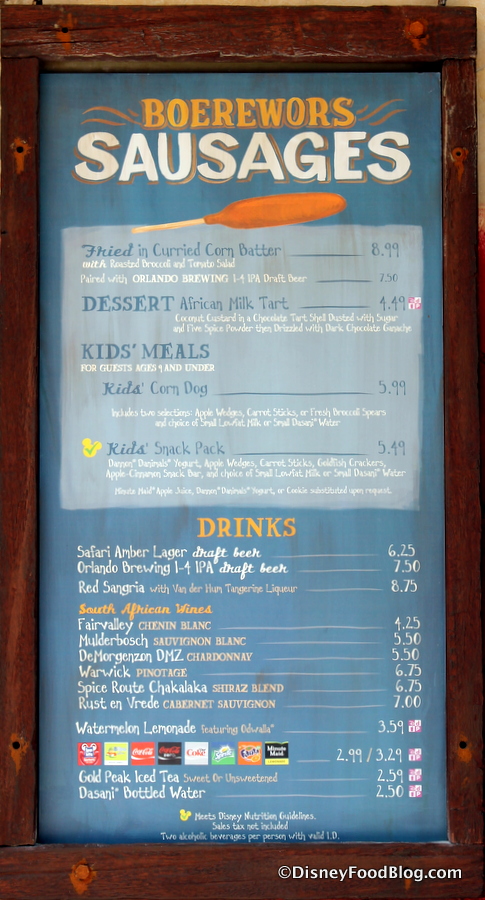 BOEREWORS
SAUSAGES
Fried in Curried Corn Batter 8.99
with Roasted Broccoli and Tomato Salad
Paired with ORLANDO BREWING I-4 IPA Draft Beer 7.50
DESSERT African Milk Tart 4.49
Coconut Custard in a Chocolate Tart Shell Dusted with Sugar
and Five Spice Powder then Drizzled with Dark Chocolate Ganache
KIDS' MEALS
FOR GUESTS AGES 9 AND UNDER
Kids' Corn Dog 5.99
Includes two selections: Apple Wedges, Carrot Sticks, or Fresh Broccoli Spears
and choice of Small Lowfat Milk or Small Dasani® Water
Kids' Snack Pack 5.49
Dannon® Danimals® Yogurt, Apple Wedges, Carrot Sticks, Goldfish Crackers,
Apple-Cinnamon Snack Bar, and choice of Small Lowfat Milk or Small Dasani® Water
Minute Maid® Apple Juice, Dannon® Danimals® Yogurt, or Cookie substituted upon request.
DRINKS
Safari Amber Lager draft beer 6.25
Orlando Brewing I-4 IPA draft beer 7.50
Red Sangria with Van der Hum Tangerine Liqueur 8.75
South African Wines
Fairvalley CHENIN BLANC 4.25
Mulderbosch SAUVIGNON BLANC 5.50
DeMorgenzon DMZ CHARDONNAY 5.50
Warwick PINOTAGE 6.75
Spice Route Chakalaka SHIRAZ BLEND 6.75
Rust en Vrede CABERNET SAUVIGNON 7.00
Watermelon Lemonade featuring Odwalla® 3.59
Coca-Cola Coke Sprite Fanta Minute Maid 2.99 / 3.29
Gold Peak Iced Tea Sweet Or Unsweetened 2.59
Dasani® Bottled Water 2.50
Meets Disney Nutrition Guidelines.
Sales tax not included
Two alcoholic beverages per person with valid I.D.
©DisneyFoodBlog.com